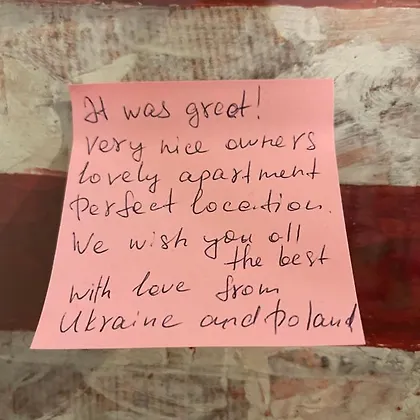 It was great!
very nice owners
lovely apartment
Perfect location.
We wish you all
the best
with love from
Ukraine and Poland